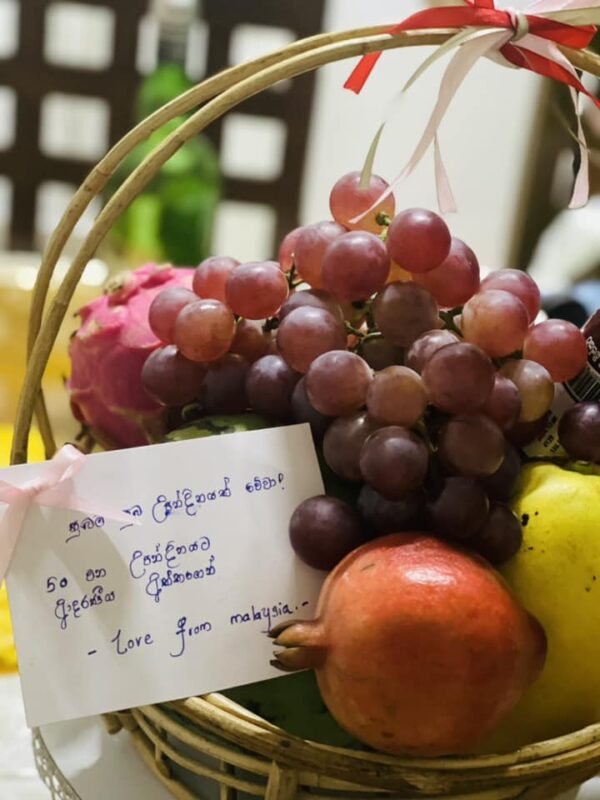 සුබම සුබ උපන්දිනයක් වේවා!
50 වන උපන්දිනයට
ආදරණීය අක්කාගෙන්
- Love from malaysia.-